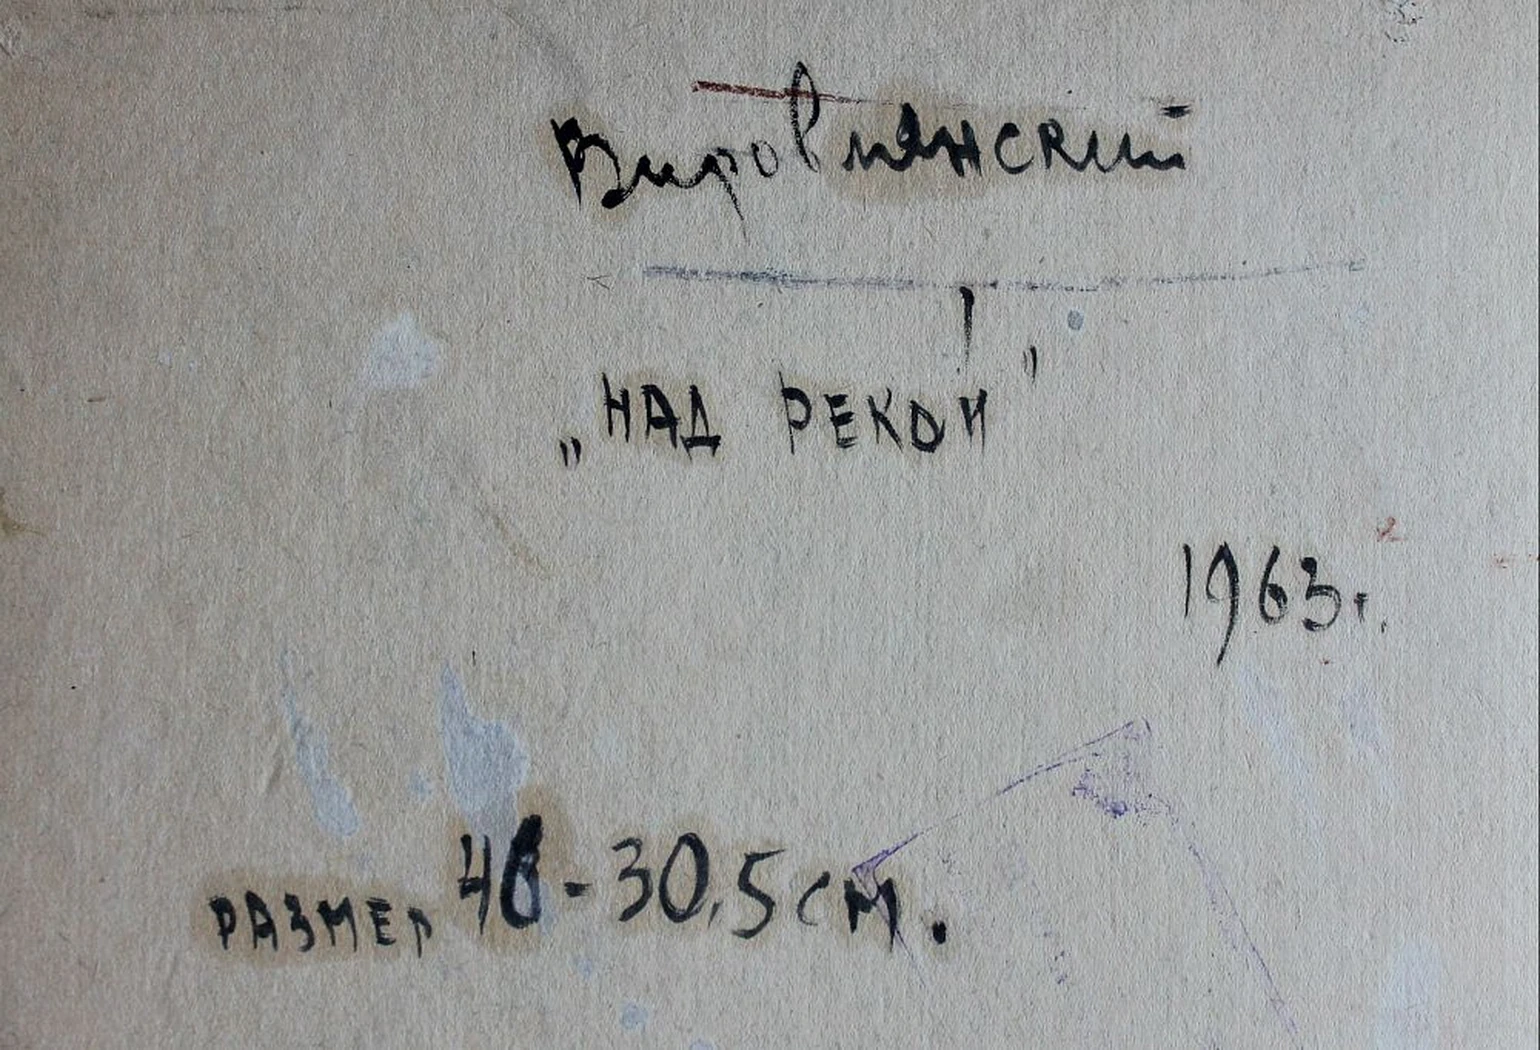 Вировлянский
„НАД РЕКОЙ"
1963г.
РАЗМЕР 46-30,5 см.